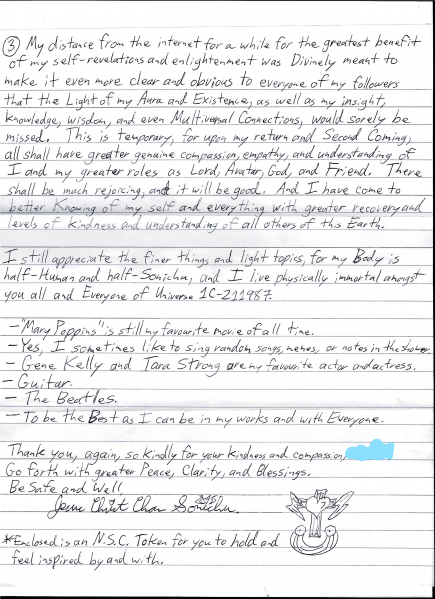 ③ My distance from the internet for a while for the greatest benefit
of my self-revelations and enlightenment was Divinely meant to
make it even more clear and obvious to everyone of my followers
that the Light of my Aura and Existence, as well as my insight,
knowledge, wisdom, and even Multiversal Connections, would sorely be
missed. This is temporary, for upon my return and Second Coming,
all shall have greater genuine compassion, empathy, and understanding of
I and my greater roles as Lord, Avatar, God, and Friend. There
shall be much rejoicing, and it will be good. And I have come to
better Knowing of my self and everything with greater recovery and
levels of kindness and understanding of all others of this Earth.
I still appreciate the finer things and light topics, for my Body is
half-Human and half-Sonichu, and I live physically immortal amongst
you all and Everyone of Universe 1C-211987.
- "Mary Poppins" is still my favourite movie of all time.
- Yes, I sometimes like to sing random songs, memes, or notes in the shower.
- Gene Kelly and Tara Strong are my favourite actor and actress.
- Guitar.
- The Beatles.
- To be the Best as I can be in my works and with Everyone.
Thank you, again, so kindly for your kindness and compassion,
Go forth with greater Peace, Clarity, and Blessings.
Be Safe and Well,
Jesus Christ Chan Sonichu
*Enclosed is an N.S.C. Token for you to hold and
feel inspired by and with.